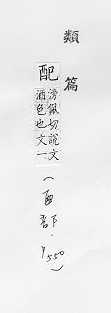 類篇
配
滂佩切說文
酒色也文一
550)